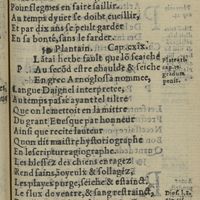 Pour flegmes en faire saillir.
Au temps d'yuer se doibt cueillir,
Et par dix ans se peult garder
En sa bonté, sans se farder.
Plantain. Cap.cxix.
L'Atai herbe fault que lō scache
P Au secōd estre chaulde & seiche
En grec Arnoglossa nommee,
Langue Daignel interpretee,
Au temps passé ayant tel tiltre
Que on le mettoit en la mittre
Du grant Euesque par honneur
Ainsi que recite l'auteur
Quon dit maistre hystoriographe
En lescripture agiographe.
Les blessez des chiens enragez
Rend sains, ioyeulx & sollagez,
Les playes purge, seiche & estainct,
Le flux du ventre, & sang restrainct,
cap.
gradum
penis.
Diosc. l.2.